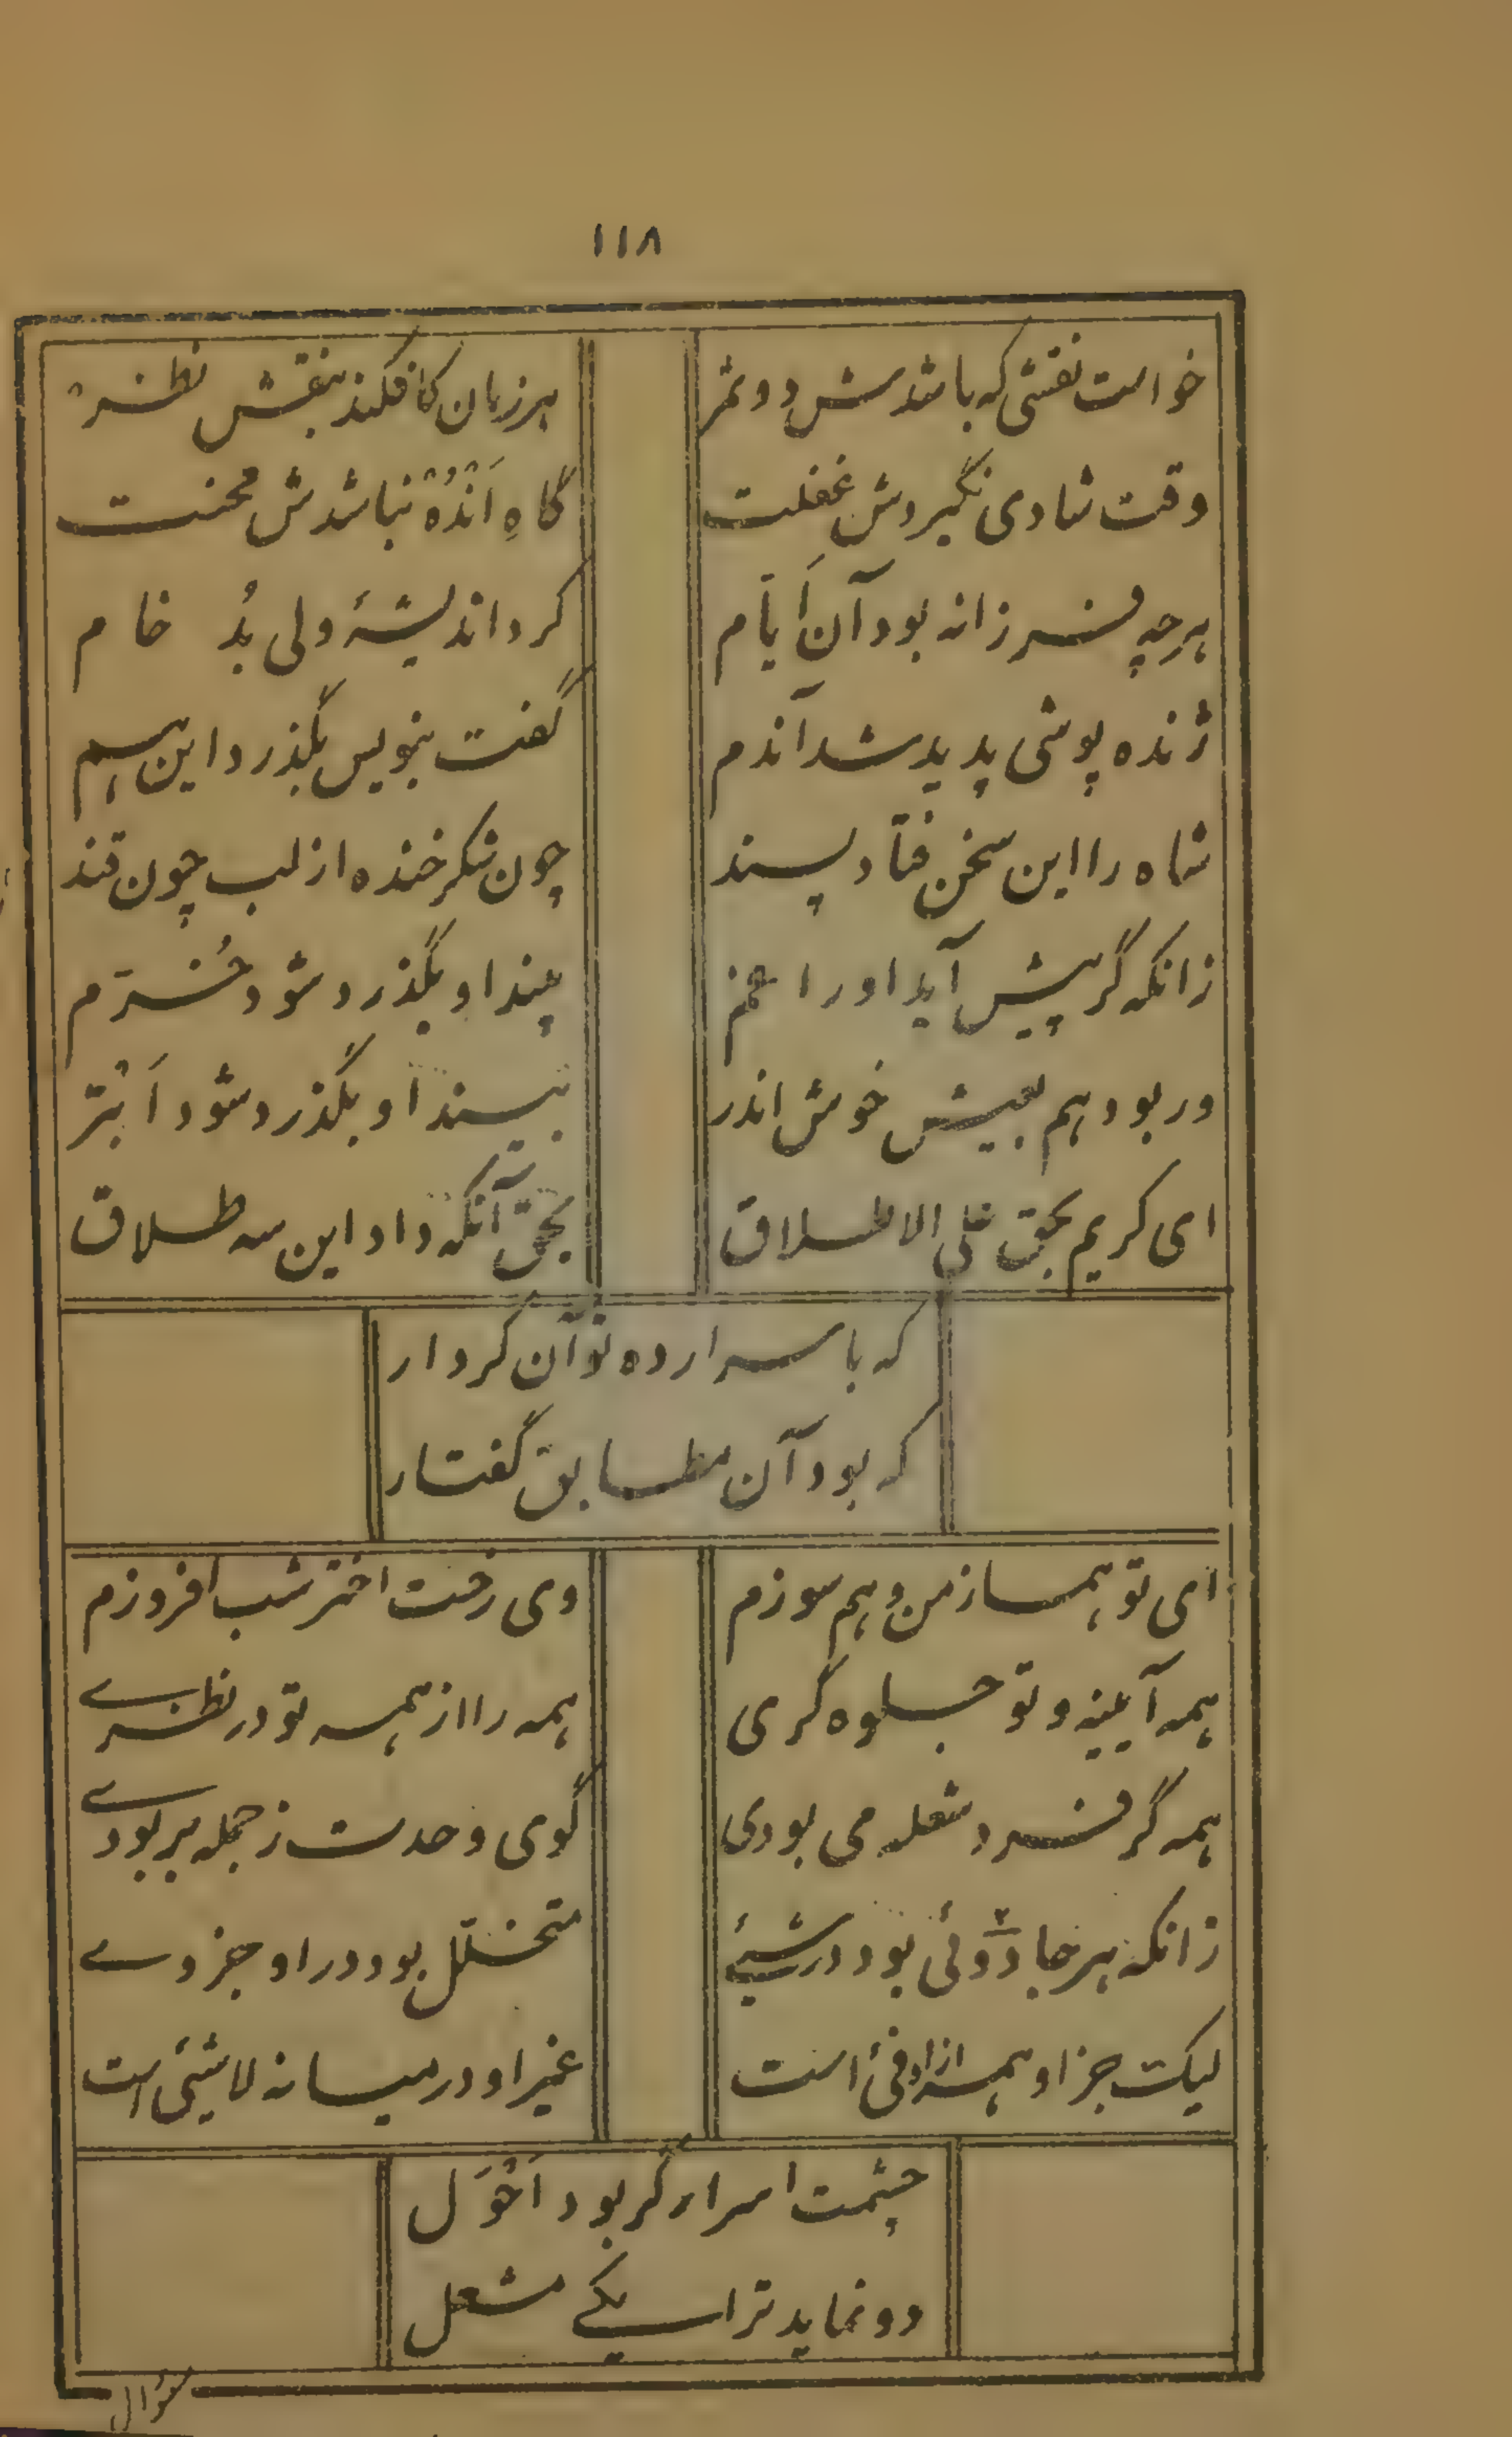 ۱۱۸
خواست نقشی که باشدش دو ثمر
هر زمان کافکند بنقش نظر
وقت شادی نگیردش غفلت
گاهِ اَنْدُهْ نباشدش محنت
هرچه فرزانه بود آن اَیّام
کرد اندیشهٔ ولی بُد خام
ژنده پوشی پدید شد آندم
گفت بنویس بگذرد این هم
شاه را این سخن فتاد پسند
چون شکر خنده از لب چون قند
زانکه گر پیش آید او را غم
بیند او بگذرد شود خُرّم
ور بود هم بعیش خوش اندر
بیند او بگذرد شود اَبْتَر
ای کریم بحق علی الاطلاق
بحق آنکه داد این سه طلاق
که باسرار ده تو آن کردار
که بود آن مطابق گفتار
ای تو همساز من و هم سوزم
وی رخت اختر شب افروزم
همه آیینه و تو جلوه گری
همه را از همه تو در نظری
همه گر فرد شعله می بودی
گوی وحدت ز جمله بربودی
زانکه هر جا دوئی بود در شیئ
متخلل بود در او جز وی
لیک جز او همه از او فیٔ است
غیر او در میانه لاشیٔ است
چشمت اسرار گر بود اَحْوَل
دو نماید ترا یکی مشعل
سؤال